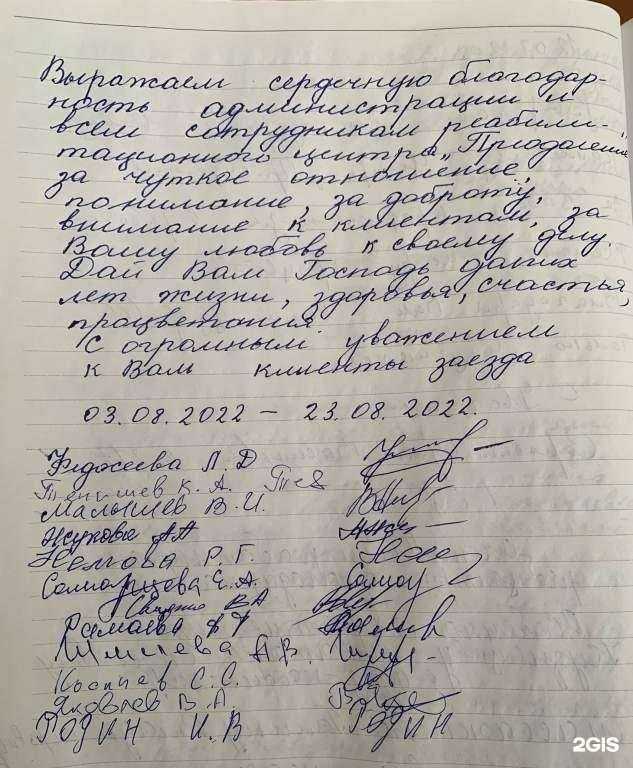 Выражаем сердечную благодар-
ность администрации и
всем сотрудникам реабили-
тационного центра „Преодоление"
за чуткое отношение,
понимание, за доброту,
внимание к клиентам, за
Вашу любовь к своему делу.
Дай Вам Господь долгих
лет жизни, здоровья, счастья,
процветания.
С огромным уважением
к Вам клиенты заезда
03.08.2022 – 23.08.2022.
Федосеева Л.Д
К. А.
Малышев В.И.
Жукова АА
Р. Г.
Е.А.
ВА
Рамаева Ф Ф
А.В.
С.С.
Яковлев В.А.
Родин И.В Родин
2GIS